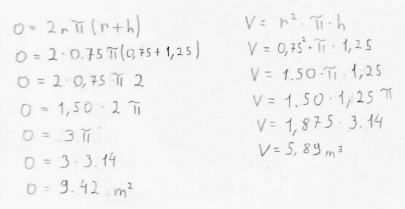 O = 2rπ(r+h)
O = 2·0.75π(0,75+1,25)
O = 2·0,75 π 2
O = 1,50·2 π
O = 3 π
O = 3·3.14
O = 9.42 m²
V = r²·π·h
V = 0,75²·π·1,25
V = 1.50·π·1,25
V = 1.50·1,25 π
V = 1,875·3.14
V = 5,89 m³